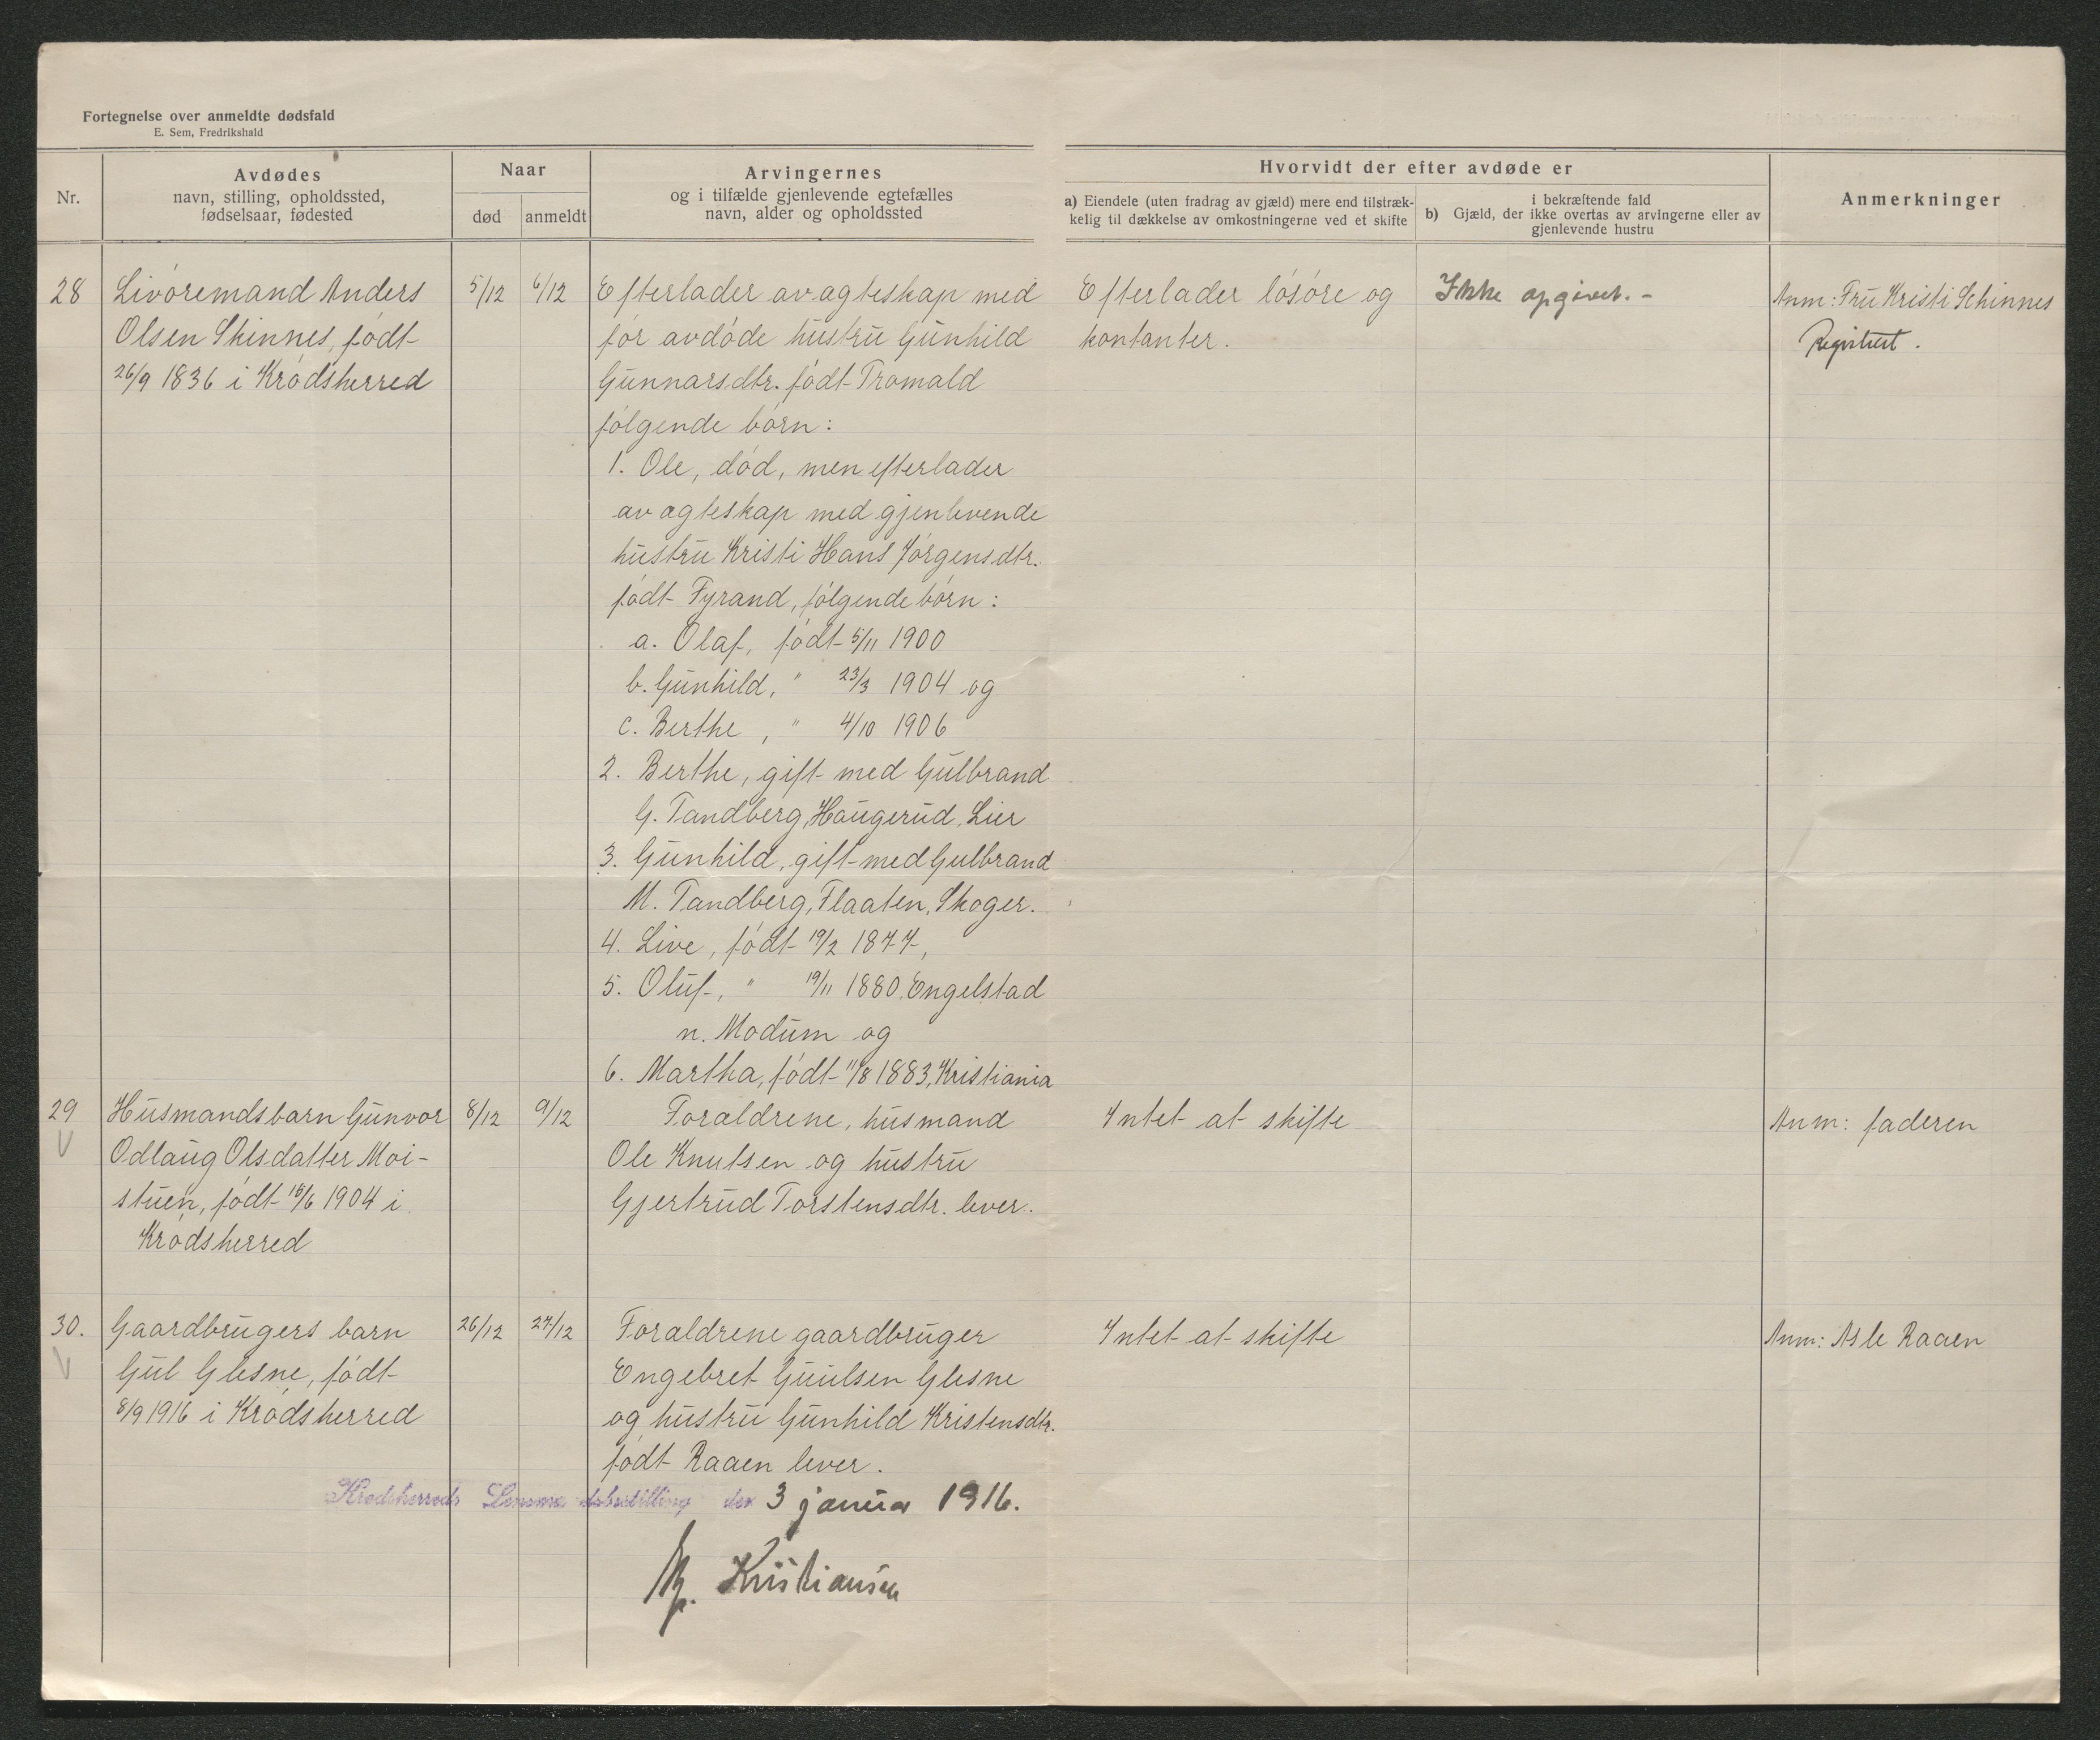 Fortegnelse over anmeldte dødsfald
E. Sem, Fredrikshald
Nr.
Avdødes
navn, stilling, opholdssted,
fødselsaar, fødested
Naar
død
anmeldt
Arvingernes
og i tilfælde gjenlevende egtefælles
navn, alder og opholdssted
Hvorvidt der efter avdøde er
a) Eiendele (uten fradrag av gjæld) mere end tilstræk-
kelig til dækkelse av omkostningerne ved et skifte
i bekræftende fald
b) Gjæld, der ikke overtas av arvingerne eller av
gjenlevende hustru
Anmerkninger
28
Livøremand Anders
Olsen Skinnes, født
26/9 1836 i Krødsherred
5/12
6/12
Efterlader av agteskap med
før avdøde hustru Gunhild
Gunnarsdtr. født Tromald
følgende børn:
1. Ole, død, men efterlader
av agteskap med gjenlevende
hustru Kristi Hans Jørgensdtr.
født Fyrand, følgende børn:
a. Olaf, født 5/11 1900
b. Gunhild, " 23/3 1904 og
c. Berthe, " 4/10 1906
2. Berthe, gift med Gulbrand
G. Tandberg, Haugerud, Lier
3. Gunhild, gift med Gulbrand
M. Tandberg, Flaaten, Skoger.
4. Live, født 19/2 1877,
5. Oluf, " 19/11 1880, Engelstad
n. Modum og
6. Martha, født 11/8 1883, Kristiania
Efterlader løsøre og
kontanter.
Ikke opgivet. -
Anm: Fru Kristi Schinnes
Registrert.
29
V
Husmandsbarn Gunvor
Odlaug Olsdatter Moi-
stuen, født 18/6 1904 i
Krødsherred
8/12
9/12
Foraldrene, husmand
Ole Knutsen og hustru
Gjertrud Torstensdtr. lever.
Intet at skifte
Anm: faderen
30.
V
Gaardbrugers barn
Gul Glesne, født
8/9 1916 i Krødsherred
26/12
27/12
Foraldrene gaardbruger
Engebret Guulsen Glesne
og hustru Gunhild Kristensdtr.
født Raaen lever.
Intet at skifte
Anm: Asle Raaen
Krødsherreds Lensmandsbestilling den 3 januar 1916.
Kristiansen